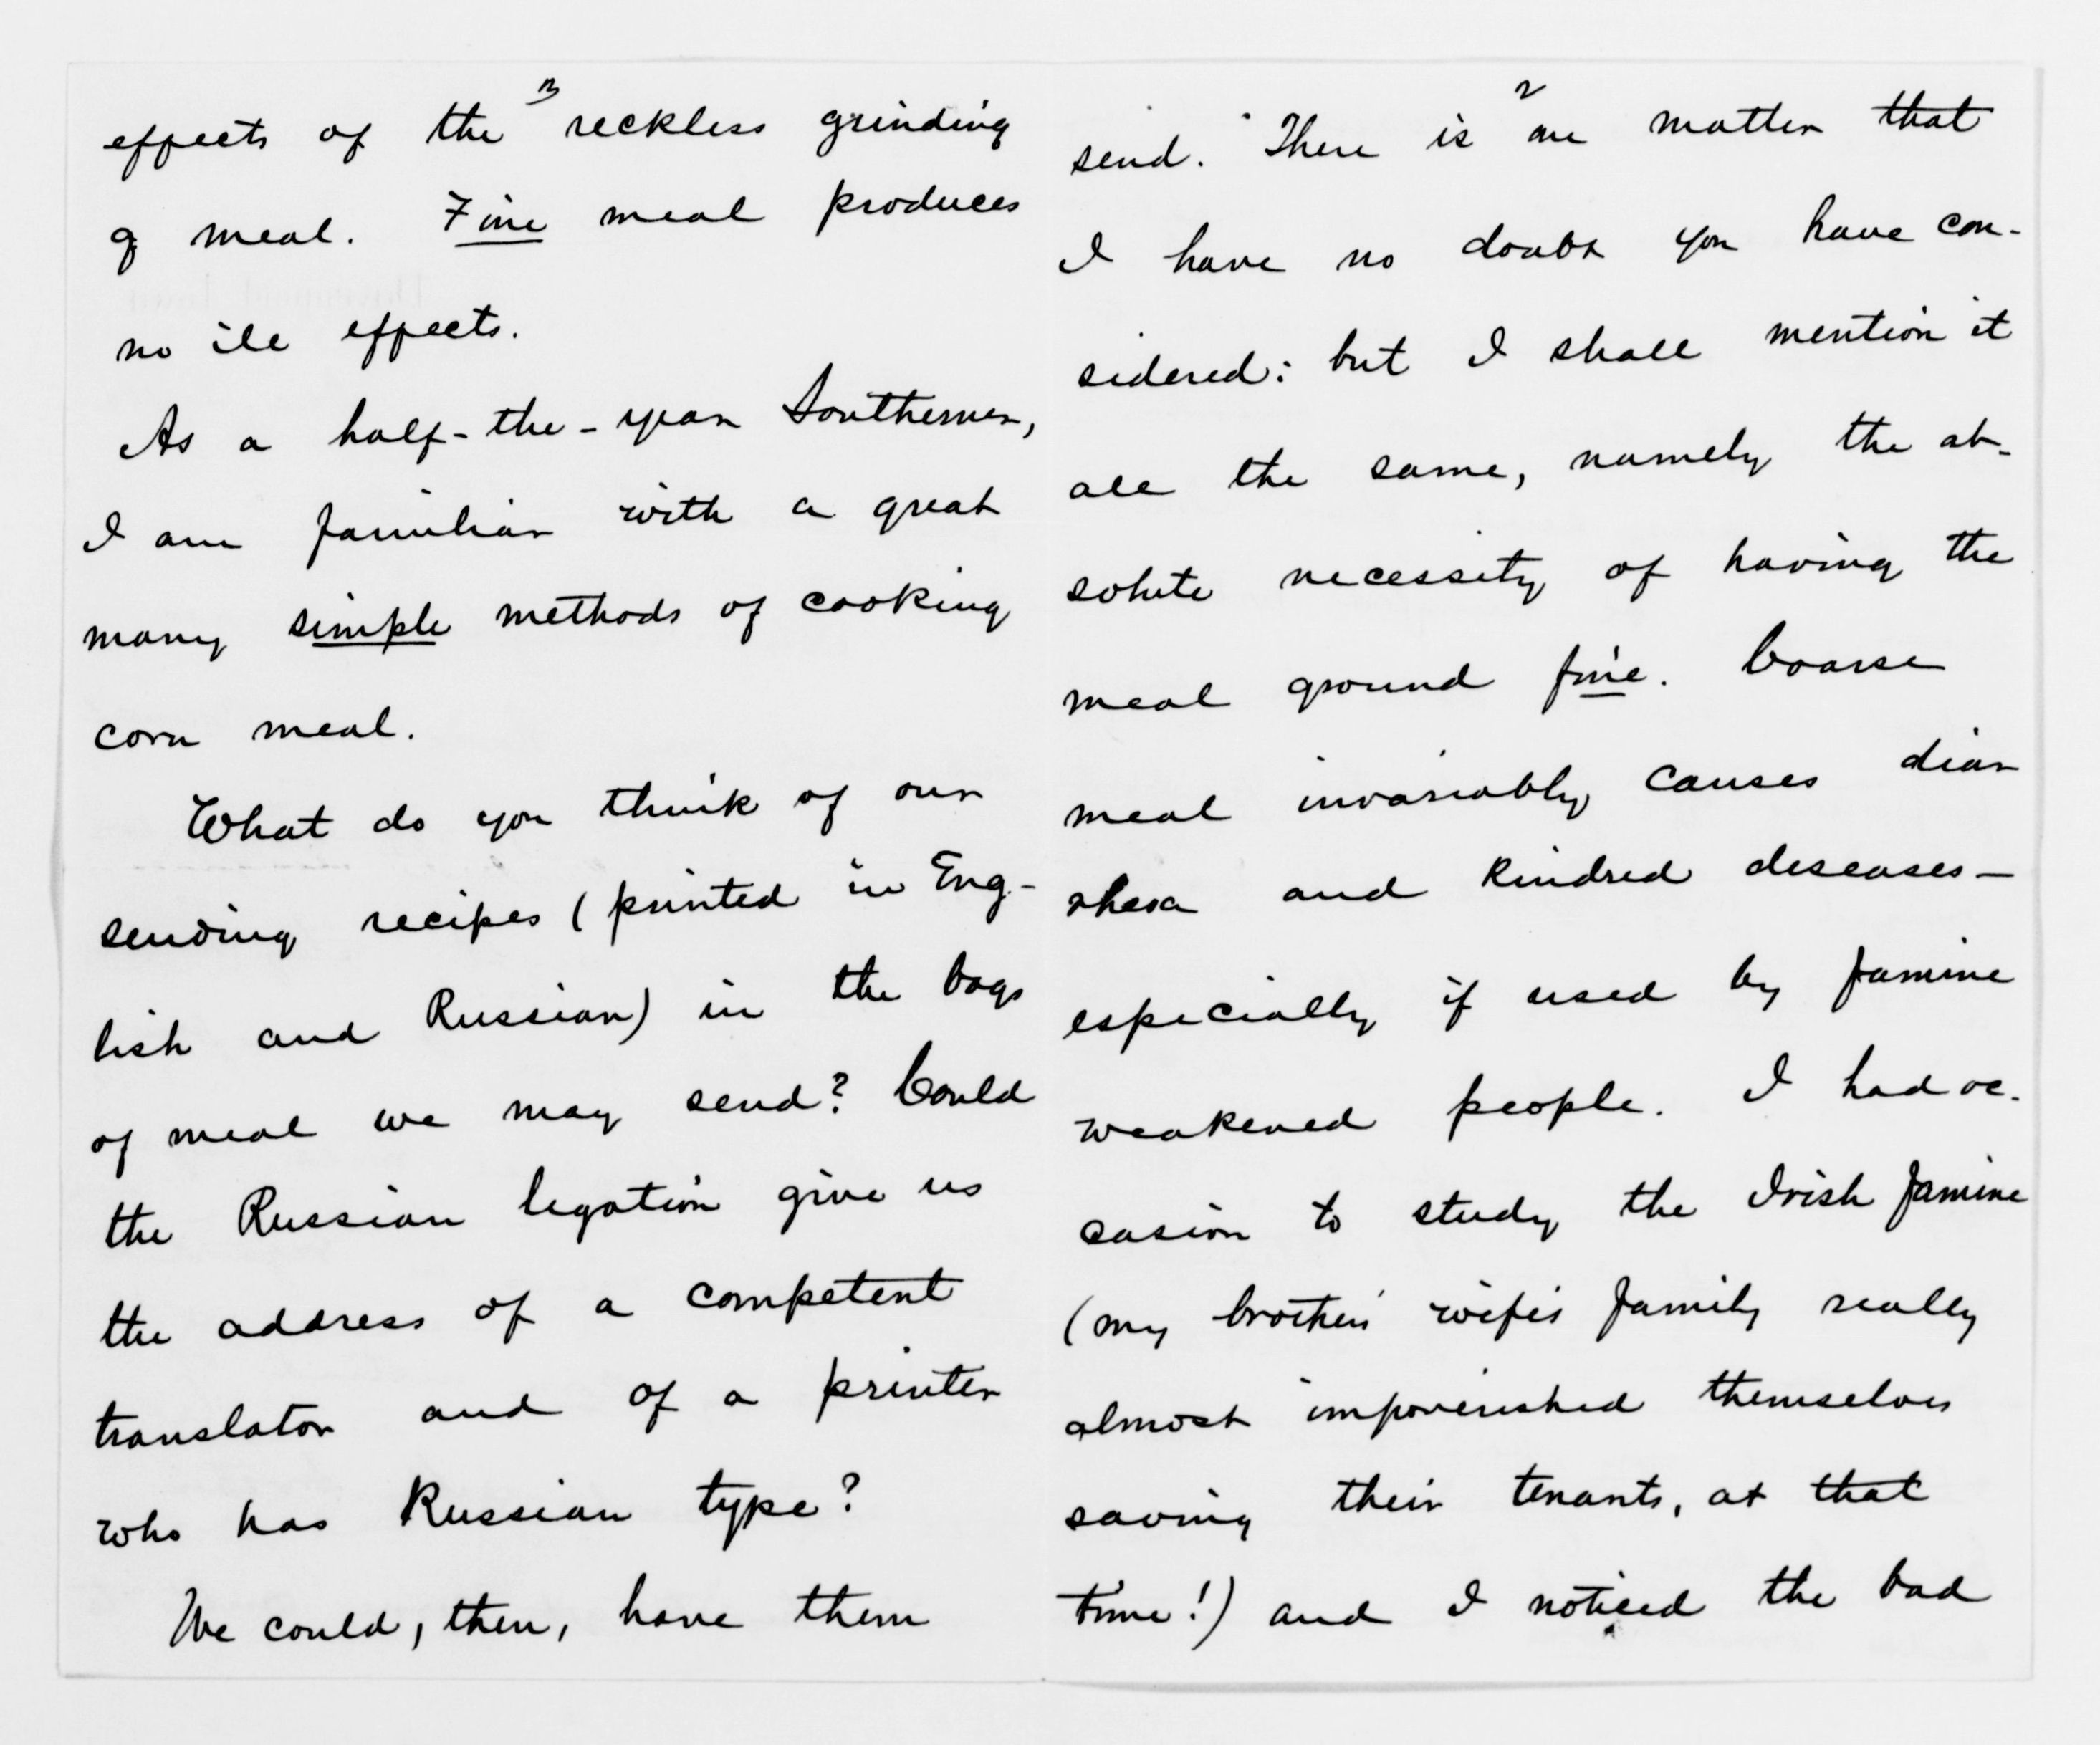 2
send. There is one matter that
I have no doubt you have con-
sidered: but I shall mention it
all the same, namely the ab-
solute necessity of having the
meal ground fine. Coarse
meal invariably causes diar
rhea and kindred diseases—
especially if used by famine
weakened people. I had oc-
casion to study the Irish famine
(my brother's wife's family really
almost impoverished themselves
saving their tenants, at that
time!) and I noticed the bad
3
effects of the reckless grinding
of meal. Fine meal produces
no ill effects.
As a half-the-year Southerner,
I am familiar with a great
many simple methods of cooking
corn meal.
What do you think of our
sending recipes (printed in Eng-
lish and Russian) in the bags
of meal we may send? Could
the Russian legation give us
the address of a competent
translator and of a printer
who has Russian type?
We could, then, have them